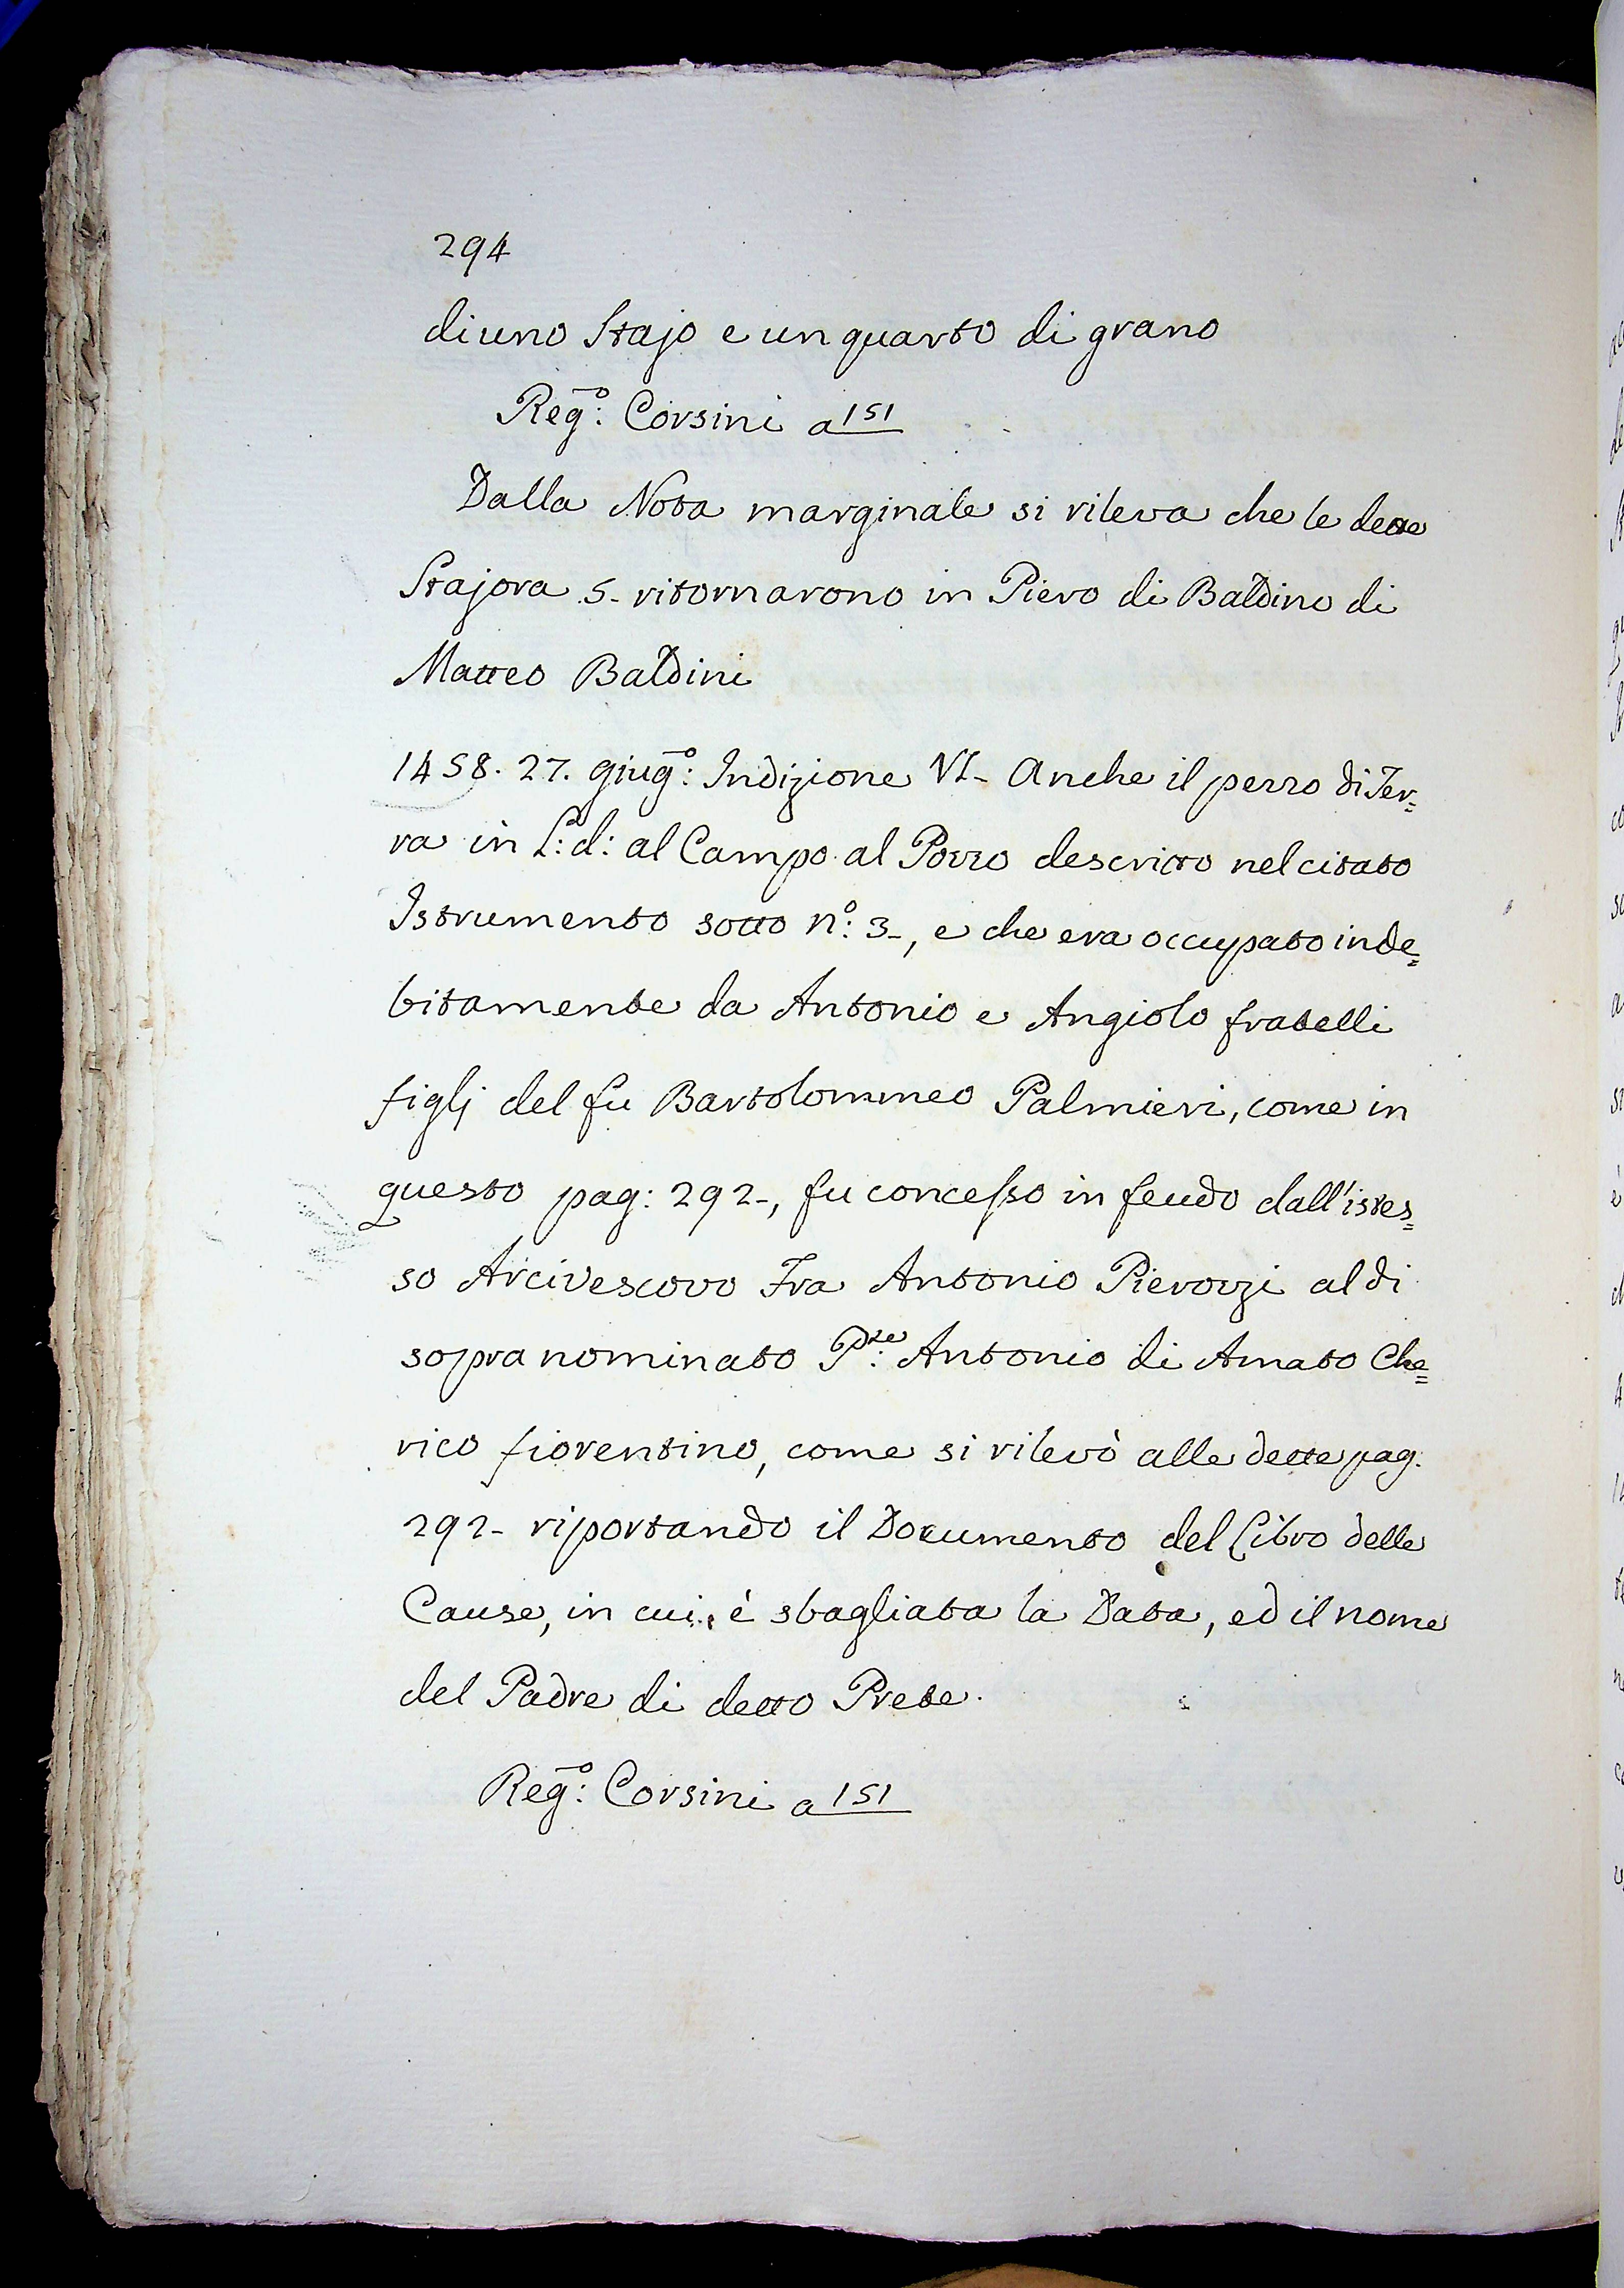 294
di uno Stajo e un quarto di grano
Reg.º: Corsini a 151
Dalla Nota marginale si rileva che le dette
Stajora 5- ritornarono in Piero di Baldino di
Matteo Baldini
1458. 27. Giug.º: Indizione VI- Anche il pezzo di Ter=
ra in L: d: al Campo al Pozzo descritto nel citato
Istrumento sotto n.º: 3-, e che era occupato inde=
bitamente da Antonio e Angiolo fratelli
figlj del fu Bartolommeo Palmieri, come in
questo pag: 292-, fu concesso in feudo dall'istes=
so Arcivescovo Fra Antonio Pierozzi al di
sopra nominato P.re: Antonio di Amato Che=
rico fiorentino, come si rilevò alle dette pag.
292- riportando il Documento del Libro delle
Cause, in cui è sbagliata la Data, ed il nome
del Padre di detto Prete.
Reg.º: Corsini a 151